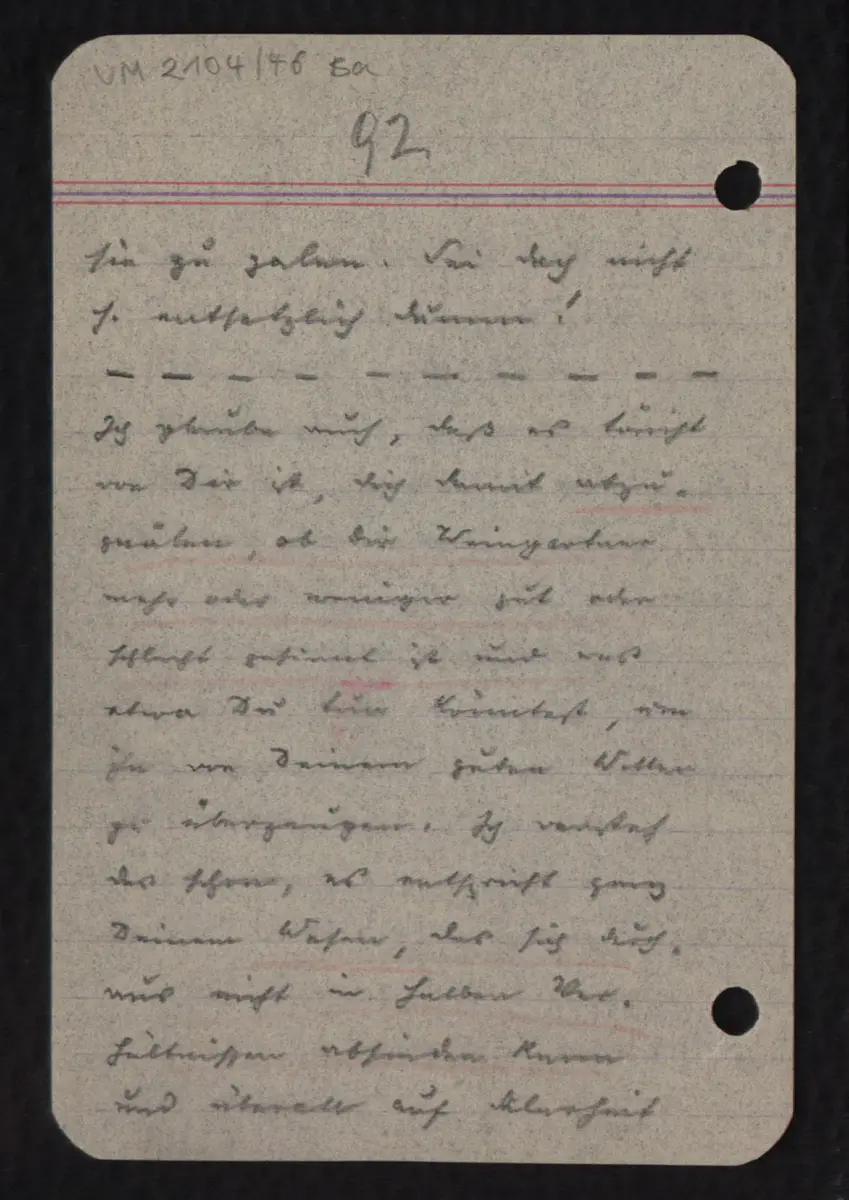 VM 2104/46 Ba
92
sie zu holen. Sei doch nicht
so entsetzlich dumm!
— — — — — — — — — —
Ich glaube auch, daß es töricht
von Dir ist, dich damit abzu-
quälen, ob dir Weingartner
mehr oder weniger gut oder
schlecht gesinnt ist und was
etwa Du tun könntest, um
ihn von Deinem guten Willen
zu überzeugen. Ich versteh
das schon, es entspricht ganz
Deinem Wesen, das sich durch-
aus nicht in halben Ver-
hältnissen abfinden kann
und überall auf Klarheit